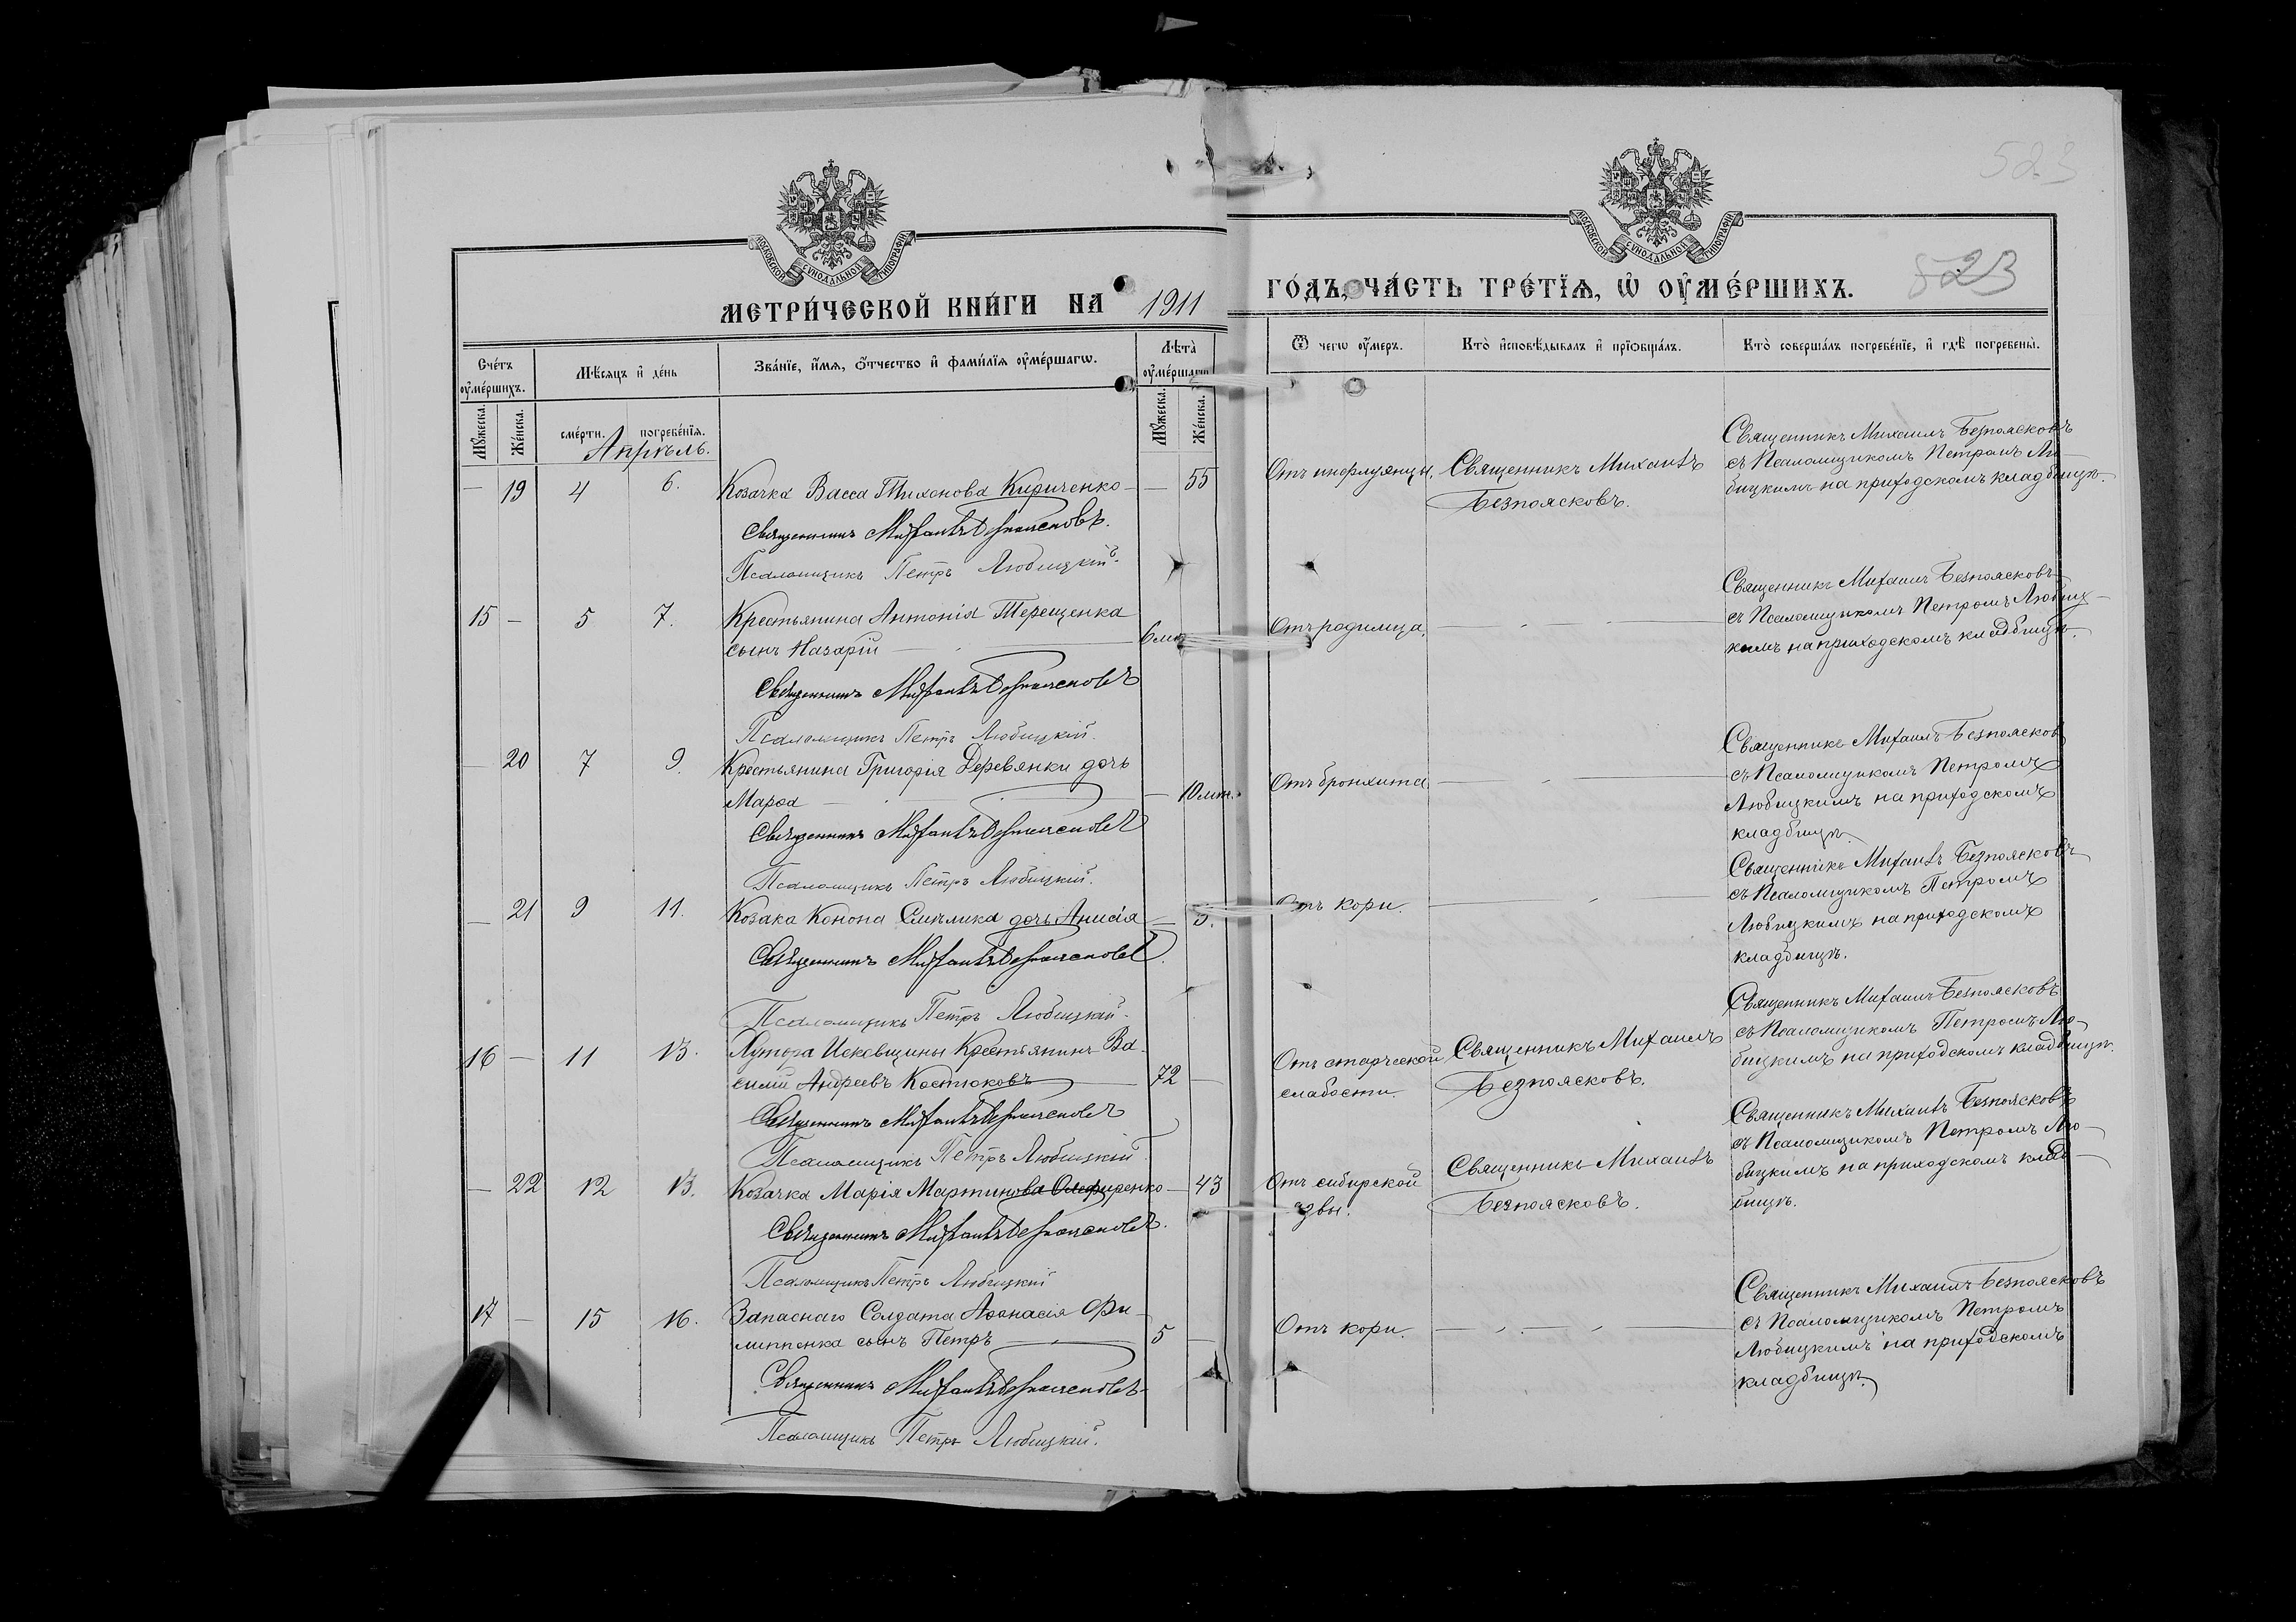 523
МОСКОВСКОЙ СУНОДАЛЬНОЙ ТИПОГРАФІИ
МОСКОВСКОЙ СУНОДАЛЬНОЙ ТИПОГРАФІИ
МЕТРИ́ЧЕСКОЙ КНИ́ГИ НА 1911 ГО́ДЪ, ЧА́СТЬ ТРЕ́ТЇѦ, Ѡ҆ ОУ҆МЕ́РШИХЪ.
523
Сче́тъ оу҆ме́ршихъ.
Мѣ́сяцъ и҆ де́нь
Зва́нїе, и҆́мѧ, ѻ҆́тчество и҆ фами́лїѧ оу҆ме́ршагѡ.
Лѣта̀ оу҆ме́ршагѡ
Ѿ чегѡ̀ оу҆́меръ.
Кто̀ и҆сповѣ́дывалъ и҆ прїѡбща́лъ.
Кто̀ соверша́лъ погребе́нїе, и҆ гдѣ̀ погребены̀.
Мꙋ́жеска.
Же́нска.
сме́рти.
погребе́нїѧ.
Мꙋ́жеска.
Же́нска.
Апрѣль.
— 19 4 6. Козачка Васса Тихонова Кириченко — — 55
Священникъ Михаилъ Безпоясковъ.
Псаломщикъ Петръ Любицкій.
Отъ инфлуэнцы.
Священникъ Михаилъ
Безпоясковъ.
Священникъ Михаилъ Безпоясковъ
съ Псаломщикомъ Петромъ Лю-
бицкимъ на приходскомъ кладбищѣ.
15 — 5 7. Крестьянина Антонія Терещенка
сынъ Назарій — 6 мѣс.
Священникъ Михаилъ Безпоясковъ
Псаломщикъ Петръ Любицкій.
Отъ родимца.
Священникъ Михаилъ Безпоясковъ
съ Псаломщикомъ Петромъ Любиц-
кимъ на приходскомъ кладбищѣ.
— 20 7 9. Крестьянина Григорія Деревянки дочь
Марѳа — — 10 мѣс.
Священникъ Михаилъ Безпоясковъ
Псаломщикъ Петръ Любицкій.
Отъ бронхита
Священникъ Михаилъ Безпоясковъ
съ Псаломщикомъ Петромъ
Любицкимъ на приходскомъ
кладбищѣ.
— 21 9 11. Козака Конона дочь Анисія —
Священникъ Михаилъ Безпоясковъ.
Псаломщикъ Петръ Любицкій.
Отъ кори.
Священникъ Михаилъ Безпоясковъ
съ Псаломщикомъ Петромъ
Любицкимъ на приходскомъ
кладбищѣ.
16 — 11 13. Хутора Исковщины Крестьянинъ Ва-
силій Андреевъ Костюковъ — 72 —
Священникъ Михаилъ Безпоясковъ
Псаломщикъ Петръ Любицкій
Отъ старческой
слабости.
Священникъ Михаилъ
Безпоясковъ.
Священникъ Михаилъ Безпоясковъ
съ Псаломщикомъ Петромъ Лю-
бицкимъ на приходскомъ кладбищѣ.
— 22 12 13. Козачка Марія Мартинова Олефиренко — 43
Священникъ Михаилъ Безпоясковъ.
Псаломщикъ Петръ Любицкій
Отъ сибирской
язвы.
Священникъ Михаилъ
Безпоясковъ.
Священникъ Михаилъ Безпоясковъ
съ Псаломщикомъ Петромъ Лю-
бицкимъ на приходскомъ клад-
бищѣ.
17 — 15 16. Запаснаго Солдата Аѳанасія Фи-
липпенка сынъ Петръ — 5 —
Священникъ Михаилъ Безпоясковъ
Псаломщикъ Петръ Любицкій.
Отъ кори.
Священникъ Михаилъ Безпоясковъ
съ Псаломщикомъ Петромъ
Любицкимъ на приходскомъ
кладбищѣ.